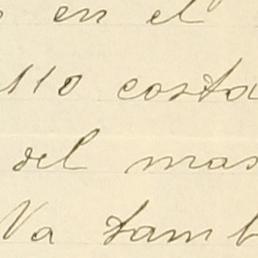 en el
110 costa
del mas
Va tamb